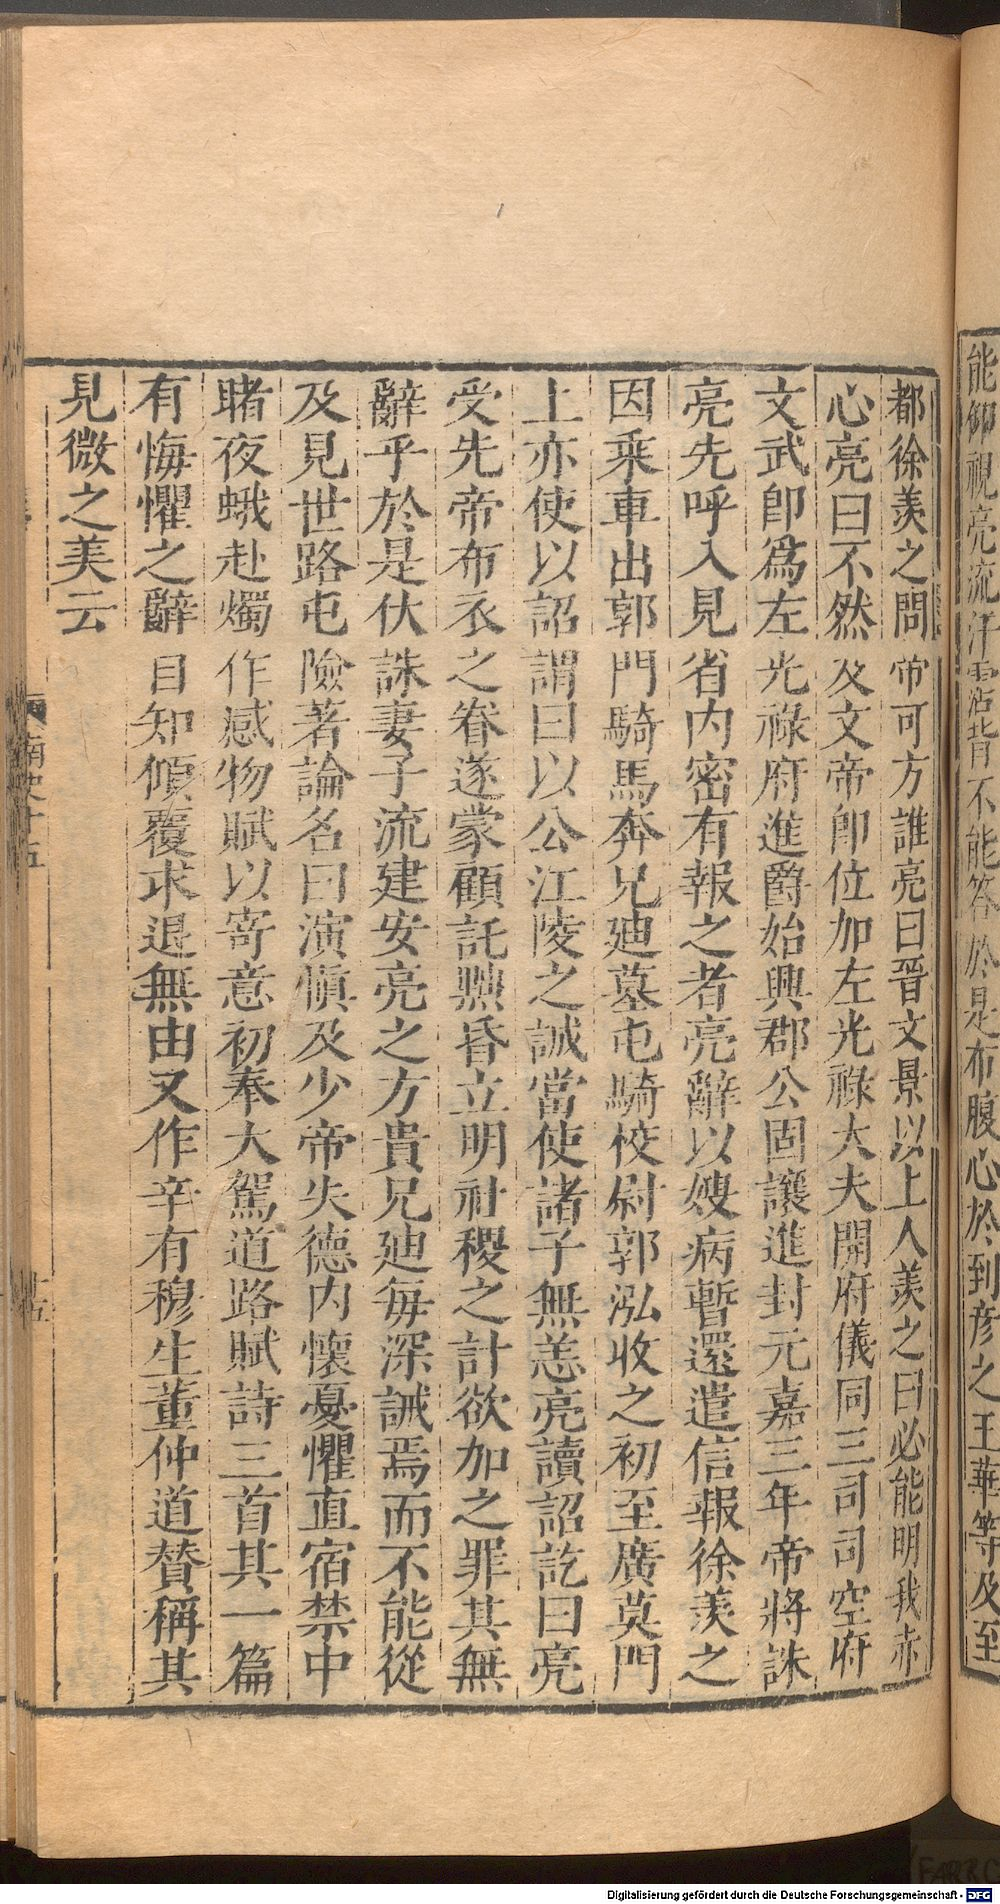 能仰視亮流汗霑背不能答於是布腹心於到彦之王華等及至
都徐羨之問帝可方誰亮曰晋文景以上人羨之曰必能明我赤
心亮曰不然及文帝即位加左光祿大夫開府儀同三司司空府
文武即爲左光祿府進爵始興郡公固讓進封元嘉三年帝將誅
亮先呼入見省内密有報之者亮辭以嫂病暫還遣信報徐羨之
因乘車出郭門騎馬奔兄廸墓屯騎校尉郭泓收之初至廣莫門
上亦使以詔謂曰以公江陵之誠當使諸子無恙亮讀詔訖曰亮
受先帝布衣之眷遂蒙顧託黜昏立明社稷之計欲加之罪其無
辭乎於是伏誅妻子流建安亮之方貴兄廸每深誡焉而不能從
及見世路屯險著論名曰演慎及少帝失德内懷憂懼直宿禁中
睹夜蛾赴燭作感物賦以寄意初奉大駕道路賦詩三首其一篇
有悔懼之辭自知傾覆求退無由又作辛有穆生董仲道贊稱其
見微之美云
南史十五
十五
Digitalisierung gefördert durch die Deutsche Forschungsgemeinschaft - DFG